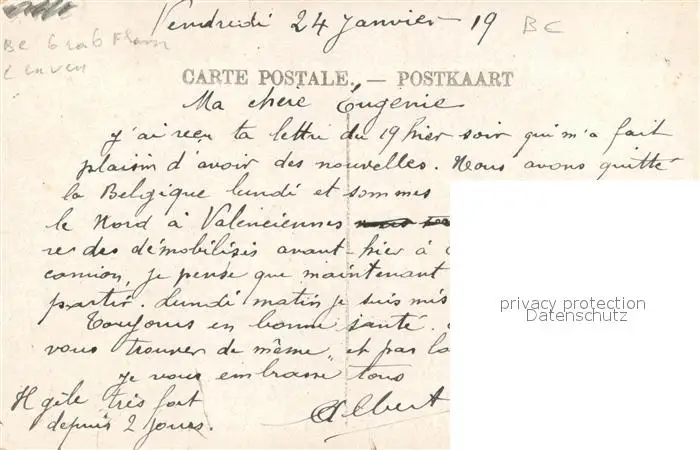 Vendredi 24 Janvier 19 BC
CARTE POSTALE. — POSTKAART
Ma chere Eugenie
j'ai recu ta lettre du 19 hier soir qui m'a fait
plaisir d'avoir des nouvelles. Nous avons quitté
la Belgique lundi et sommes
le Nord à Valenciennes
rer des démobilisés avant-hier à
camion, je pense que maintenant
partir. Lundi matin je suis mis
Toujours en bonne santé.
vous trouver de même, et par la
je vous embrasse tous
Il gèle très fort
depuis 2 jours.
Albert
privacy protection
Datenschutz